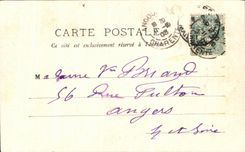 CARTE POSTALE
Ce côté est exclusivement réservé à l'adresse
Madame Vve Briand
56 Rue Fulton
Angers
M et Loire